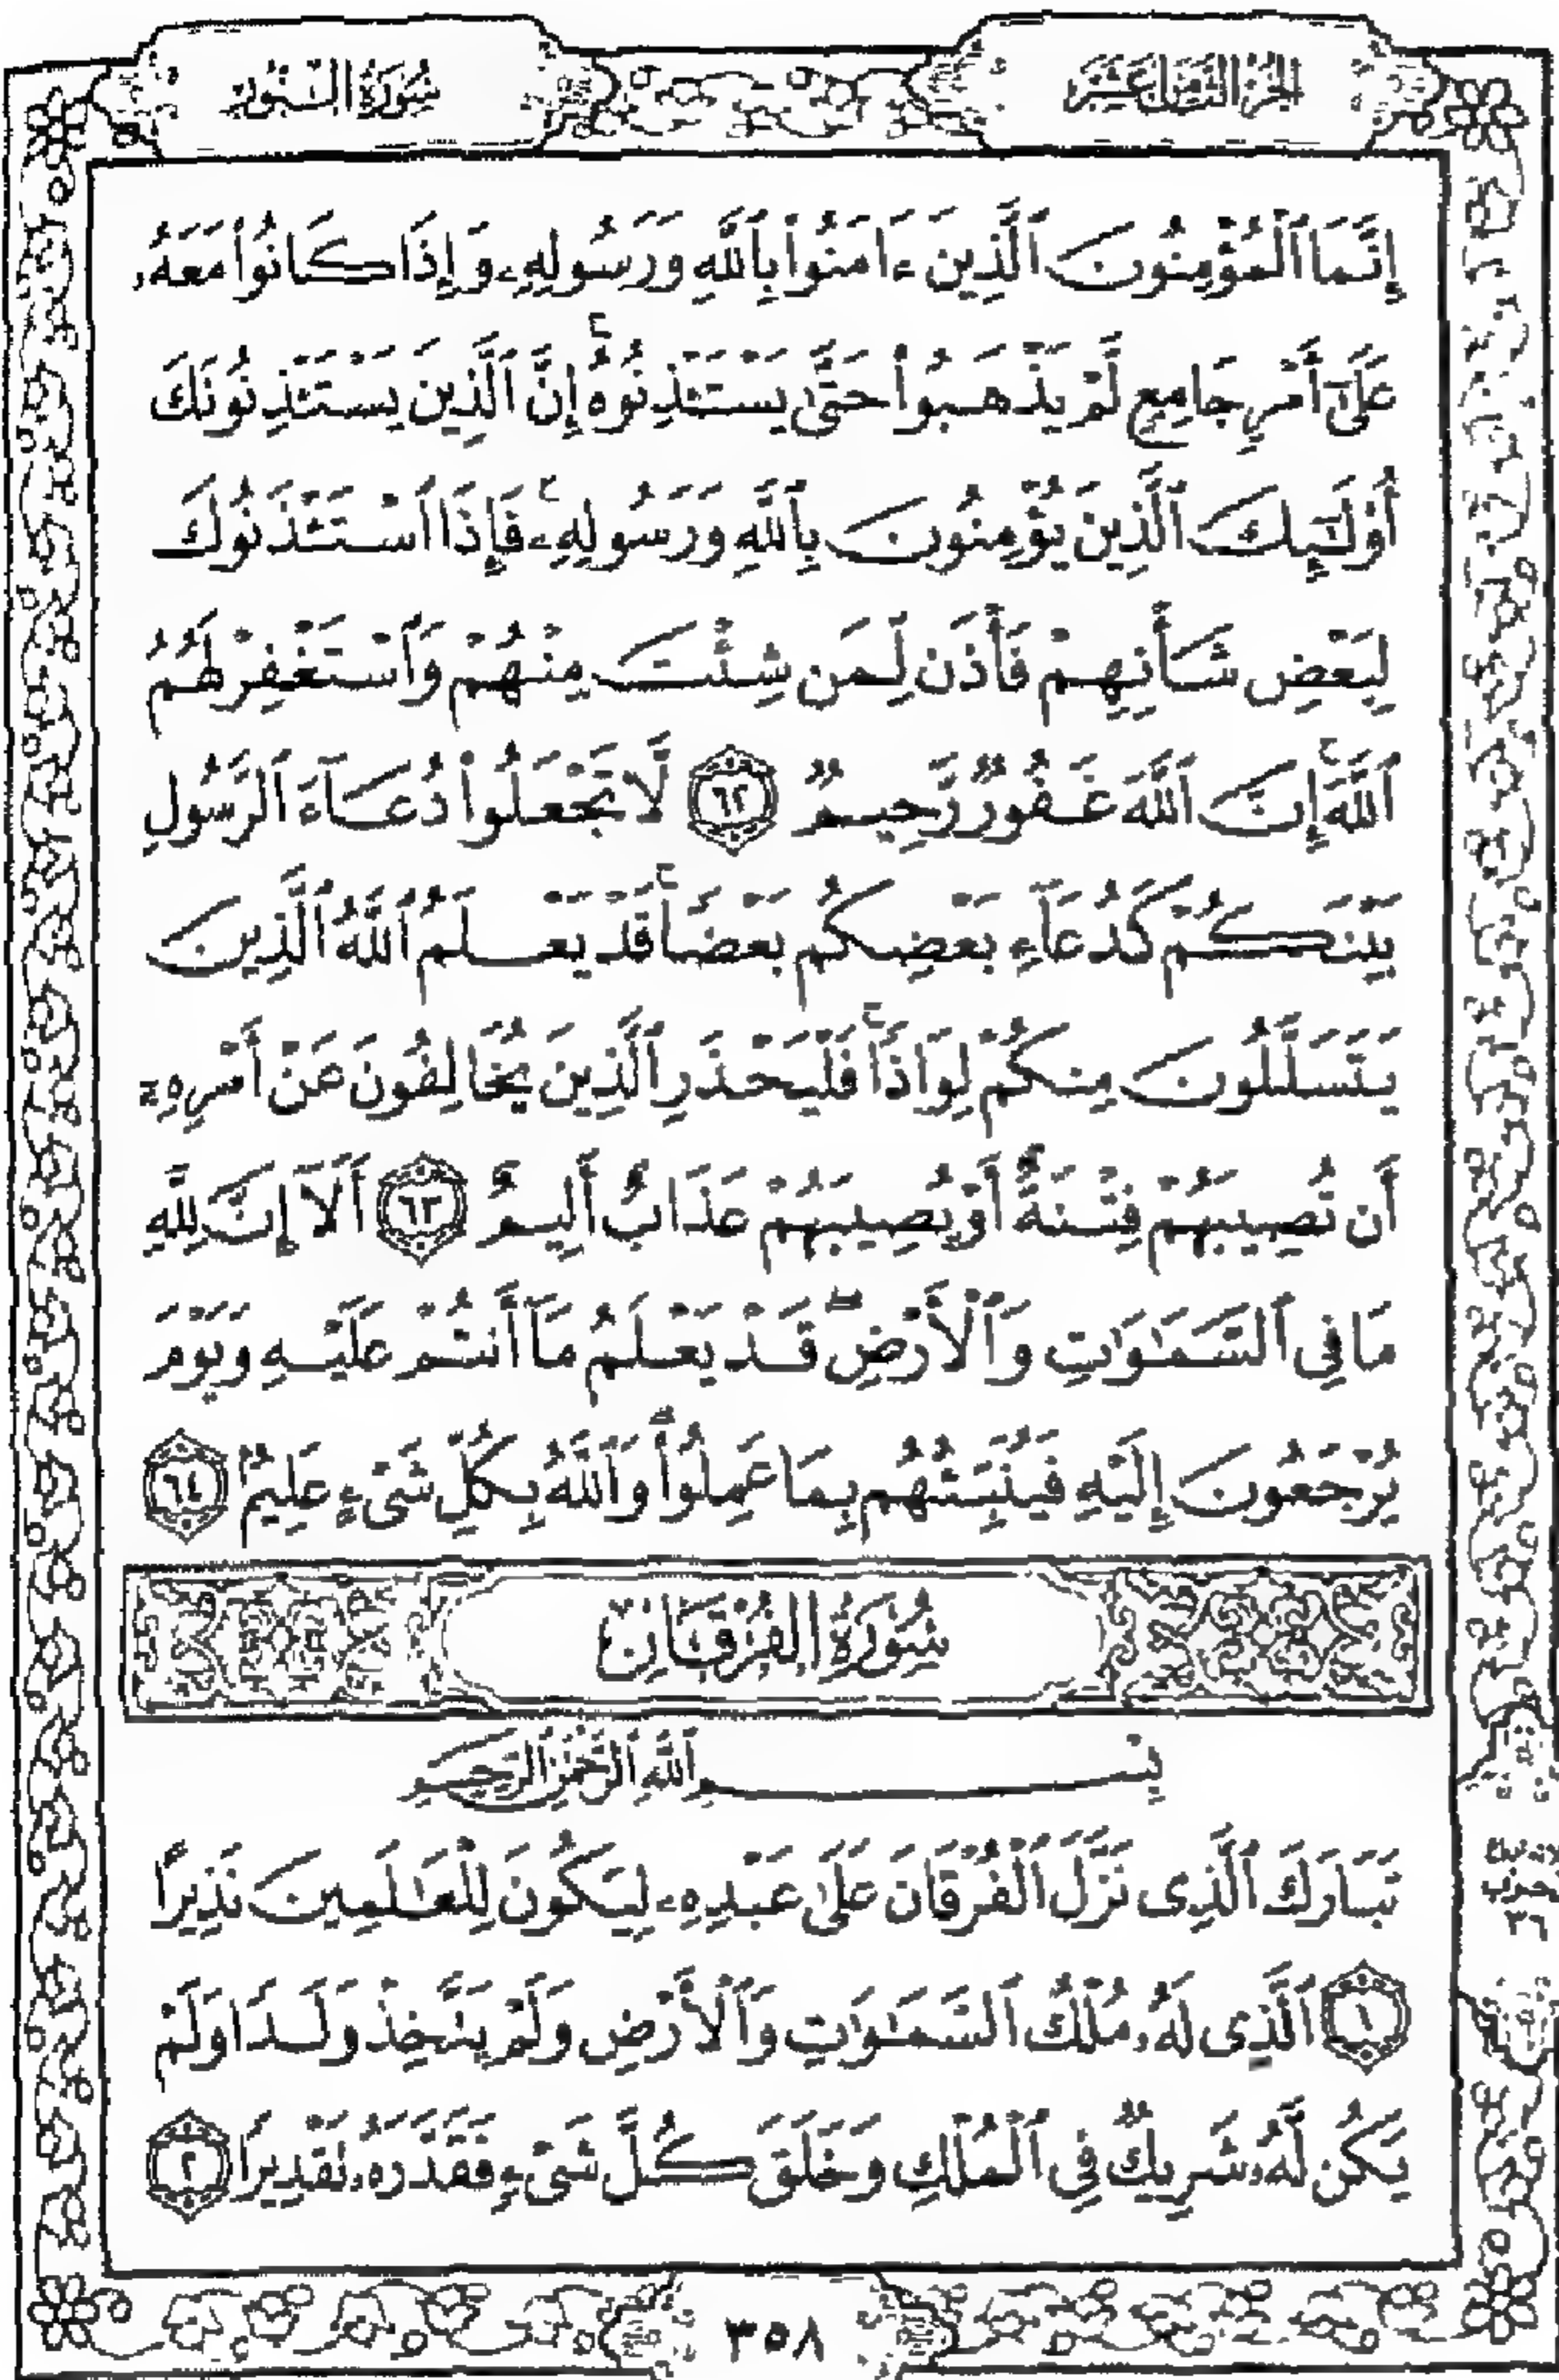 الجزء الثامن عشر
سورة النور
إِنَّمَا ٱلْمُؤْمِنُونَ ٱلَّذِينَ ءَامَنُوا۟ بِٱللَّهِ وَرَسُولِهِۦ وَإِذَا كَانُوا۟ مَعَهُۥ
عَلَىٰٓ أَمْرٍ جَامِعٍ لَّمْ يَذْهَبُوا۟ حَتَّىٰ يَسْتَـْٔذِنُوهُ ۚ إِنَّ ٱلَّذِينَ يَسْتَـْٔذِنُونَكَ
أُو۟لَـٰٓئِكَ ٱلَّذِينَ يُؤْمِنُونَ بِٱللَّهِ وَرَسُولِهِۦ ۚ فَإِذَا ٱسْتَـْٔذَنُوكَ
لِبَعْضِ شَأْنِهِمْ فَأْذَن لِّمَن شِئْتَ مِنْهُمْ وَٱسْتَغْفِرْ لَهُمُ
ٱللَّهَ ۚ إِنَّ ٱللَّهَ غَفُورٌ رَّحِيمٌ ٦٢ لَّا تَجْعَلُوا۟ دُعَآءَ ٱلرَّسُولِ
بَيْنَكُمْ كَدُعَآءِ بَعْضِكُم بَعْضًا ۚ قَدْ يَعْلَمُ ٱللَّهُ ٱلَّذِينَ
يَتَسَلَّلُونَ مِنكُمْ لِوَاذًا ۚ فَلْيَحْذَرِ ٱلَّذِينَ يُخَالِفُونَ عَنْ أَمْرِهِۦٓ
أَن تُصِيبَهُمْ فِتْنَةٌ أَوْ يُصِيبَهُمْ عَذَابٌ أَلِيمٌ ٦٣ أَلَآ إِنَّ لِلَّهِ
مَا فِى ٱلسَّمَـٰوَٰتِ وَٱلْأَرْضِ ۖ قَدْ يَعْلَمُ مَآ أَنتُمْ عَلَيْهِ وَيَوْمَ
يُرْجَعُونَ إِلَيْهِ فَيُنَبِّئُهُم بِمَا عَمِلُوا۟ ۗ وَٱللَّهُ بِكُلِّ شَىْءٍ عَلِيمٌۢ ٦٤
سُورَةُ الفُرْقَانِ
بِسْمِ ٱللَّهِ ٱلرَّحْمَـٰنِ ٱلرَّحِيمِ
تَبَارَكَ ٱلَّذِى نَزَّلَ ٱلْفُرْقَانَ عَلَىٰ عَبْدِهِۦ لِيَكُونَ لِلْعَـٰلَمِينَ نَذِيرًا
١ ٱلَّذِى لَهُۥ مُلْكُ ٱلسَّمَـٰوَٰتِ وَٱلْأَرْضِ وَلَمْ يَتَّخِذْ وَلَدًا وَلَمْ
يَكُن لَّهُۥ شَرِيكٌ فِى ٱلْمُلْكِ وَخَلَقَ كُلَّ شَىْءٍ فَقَدَّرَهُۥ تَقْدِيرًا ٢
٣٦
٣٥٨